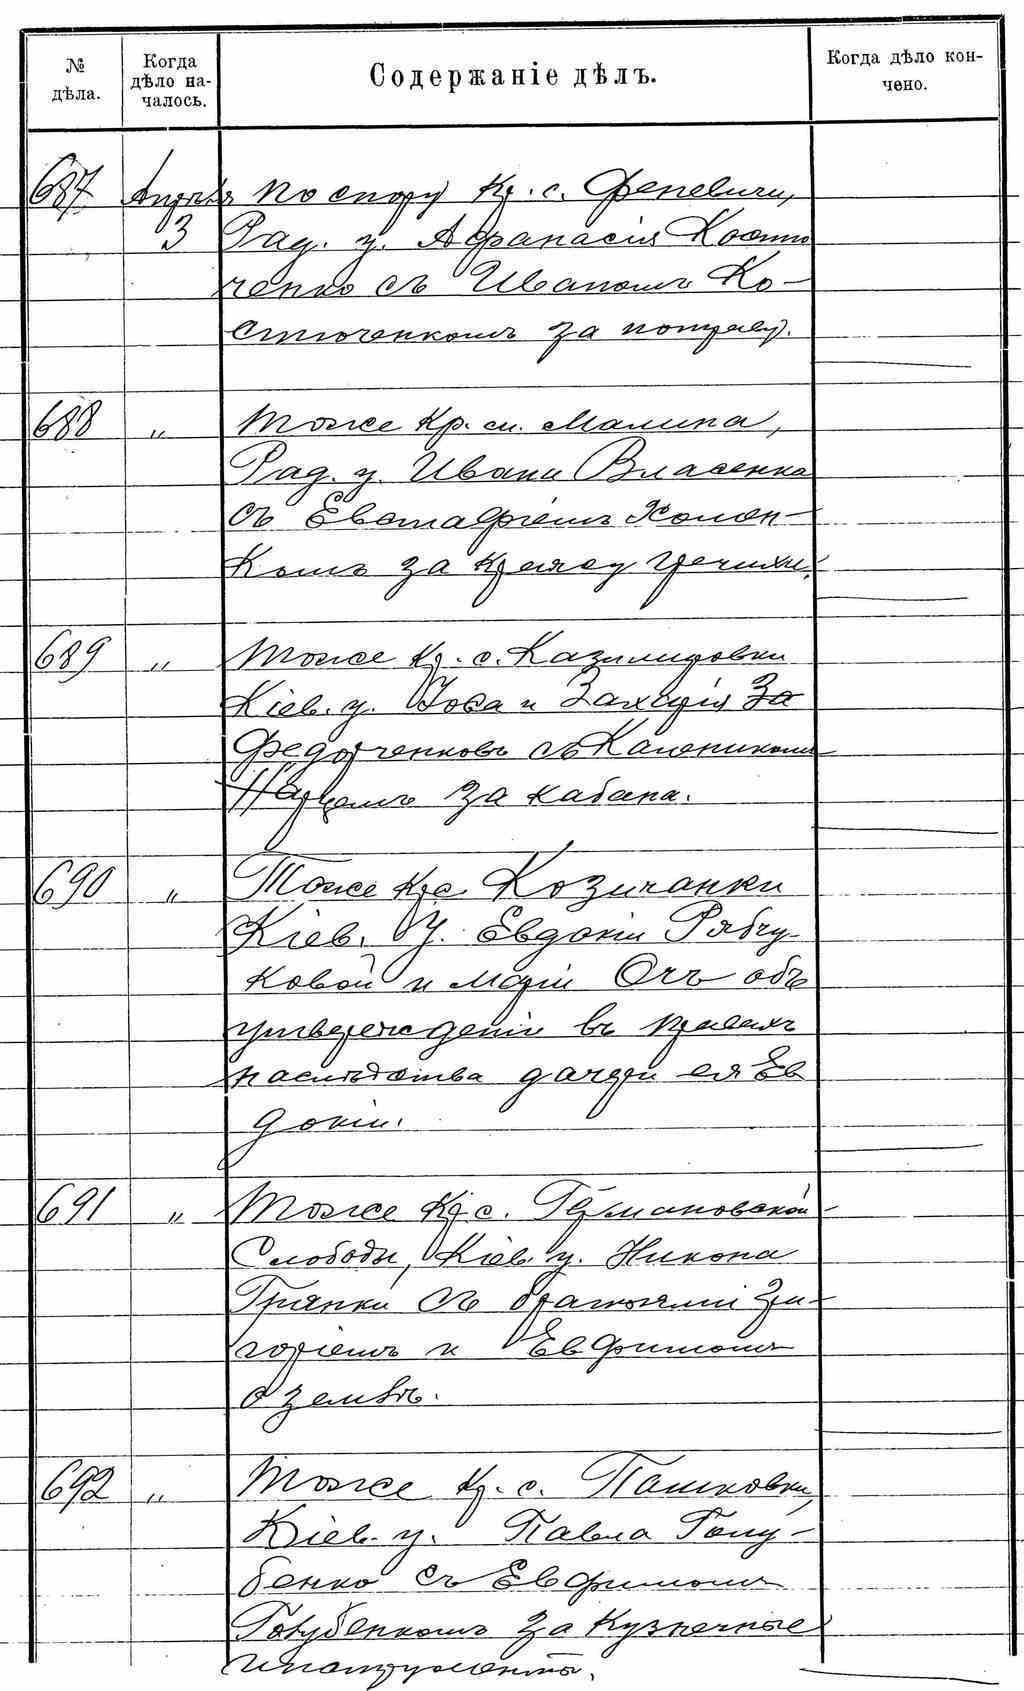 № дѣла.
Когда дѣло началось.
Содержаніе дѣлъ.
Когда дѣло кончено.
687 Апрѣля По спору Кр. с. Феневичи,
3 Рад. у. Афанасія Костю
ченко съ Иваномъ Ко-
стюченкомъ за потраву.
688 „ Тоже Кр. м. Малина,
Рад. у. Ивана Власенка
съ Евстафіемъ Хомен-
комъ за кражу гречихи.
689 „ Тоже Кр. с. Казимировки
Кіев. у. и Захарія За
Федорченковъ съ Калеником
за кабана.
690 „ Тоже Кр. с. Козичанки
Кіев. у. Евдокіи Рябчу
ковой и Маріи объ
утвержденіи въ правахъ
наслѣдства дочери ея Ев
докіи.
691 „ Тоже Кр. с. Гурмановской
Слободы, Кіев. у. Никона
Грянки съ братьями Гри-
горіемъ и Евфимомъ
о землѣ.
692 „ Тоже Кр. с. Пашковки,
Кіев. у. Павла Голу-
бенко съ Евфимомъ
Голубенкомъ за кузнечные
инструменты.